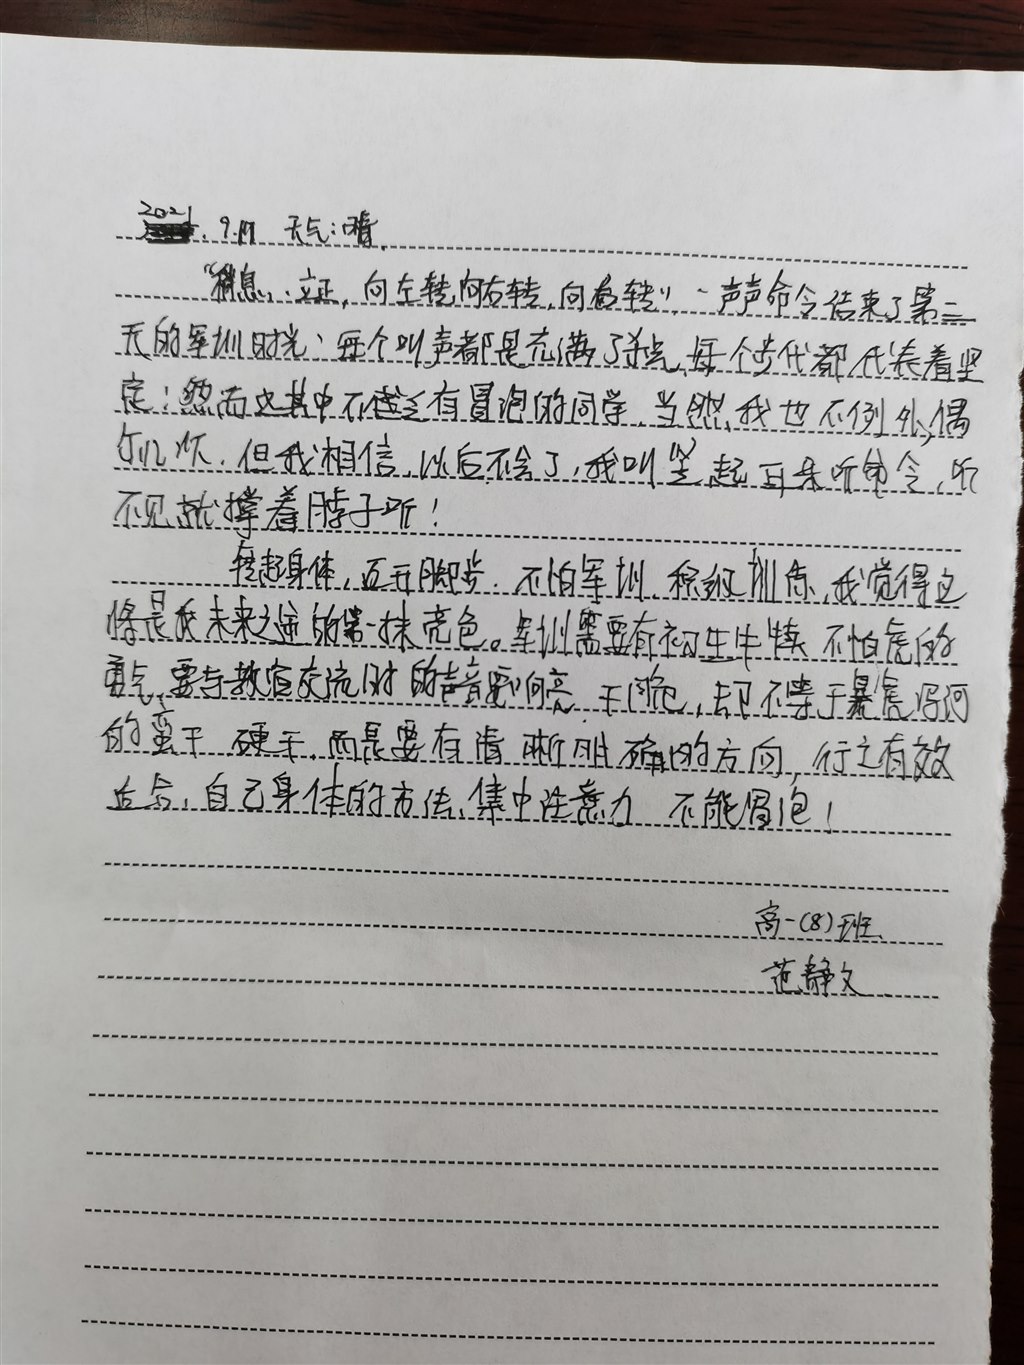 2021. 9.17 天气:晴.
"稍息,立正,向左转,向右转,向后转",一声声命令结束了第二
天的军训时光,每个叫声都是充满了,每个步代都代表着坚
定!然而这其中不缺乏有冒泡的同学,当然,我也不例外,偶
尔几次.但我相信,以后不会了,我叫竖起耳朵听命令,听
不见就撑着脖子听!
转起身体,迈开脚步.不怕军训,积极训练,我觉得这
将是我未来之途的第一抹亮色。军训需要有初生牛犊不怕虎的
勇气,要与教官交流时的声音要响亮.干脆,却不等于暴虎冯河
的蛮干 硬干,而是要有清晰明确的方向,行之有效
适合,自己身体的方法,集中注意力 不能冒泡!
高一(8)班
范静文